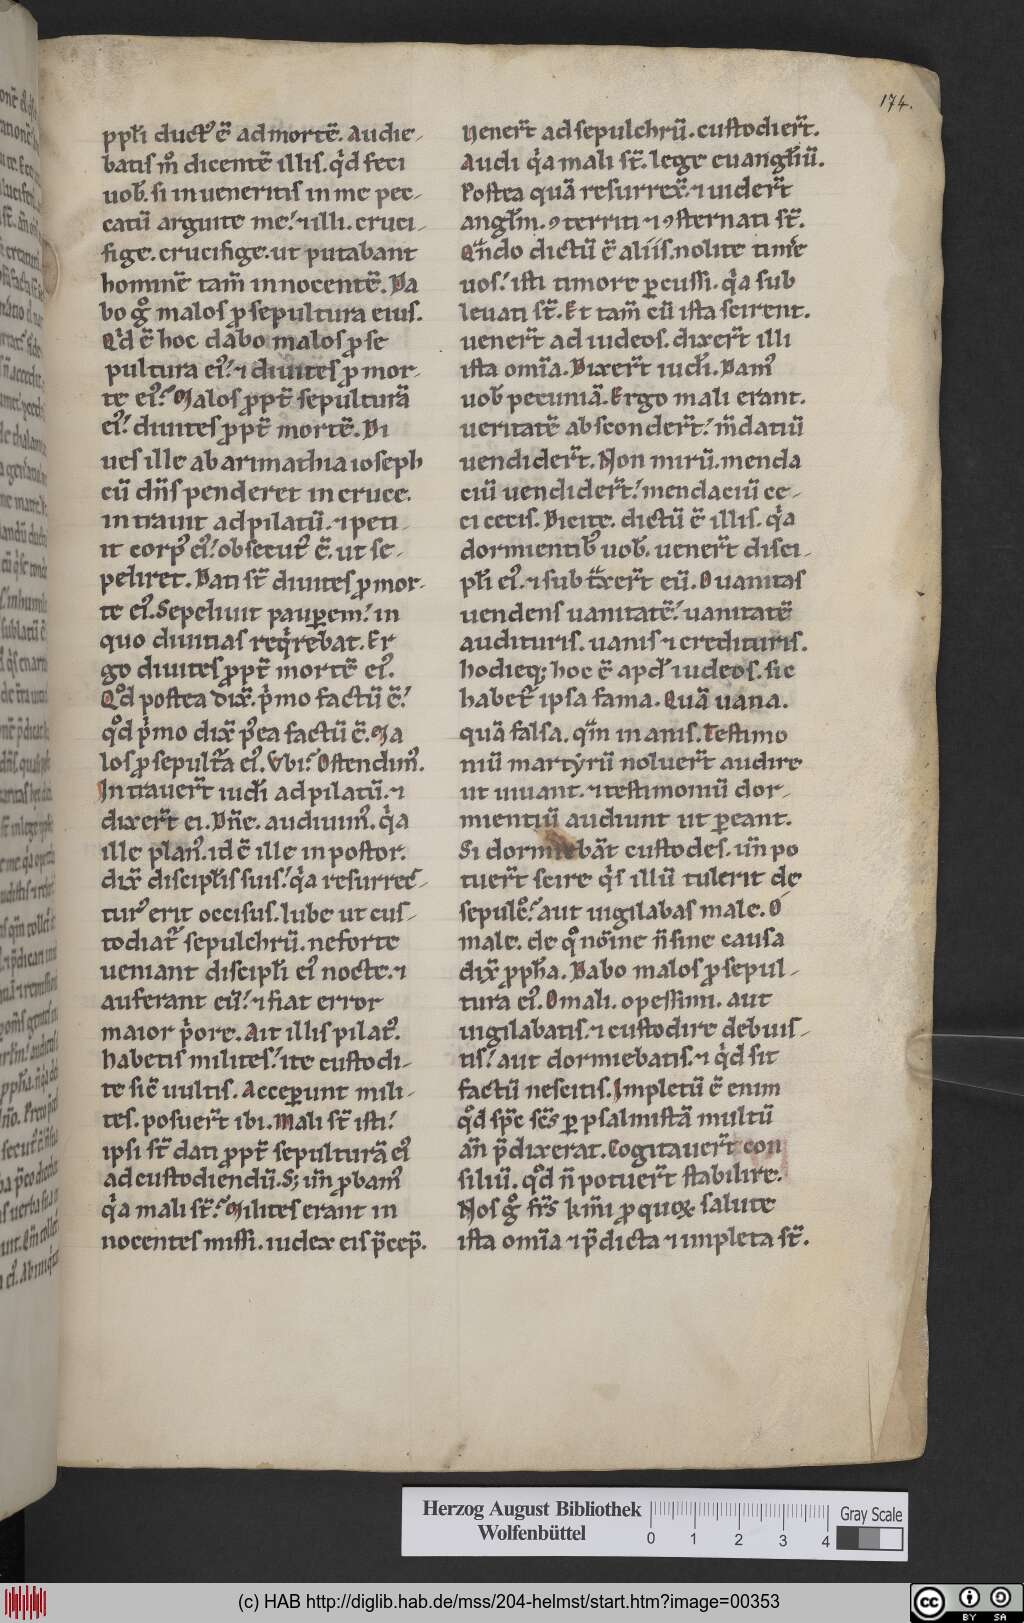 174.
ppli duct' ē ad mortē. Audie-
batis m̊ dicentē illis. qͥd feci
uob̄. si inueneritis in me pec-
catū arguite me.' ⁊ illi. cruci-
fige. crucifige. ut putabant
hominē tam̄ innocentē. Da
bo gͦ malos ꝓ sepultura eius.
Qͥd ē hoc dabo malos ꝓ se
pultura ei'.' ⁊ diuites ꝓ mor-
te ei'.' Malos ꝓpt̄ sepulturā
ei'.' diuites ꝓpt̄ mortē. Di
ues ille ab arimathia ioseph
cū dn̄s penderet in cruce.
intrauit ad pilatū. ⁊ peti-
it corp' ei'.' obsecut' ē. ut se-
peliret. Dati st̄ diuites ꝓ mor-
te ei'. Sepeliuit pauꝑem.' in
quo diuitias reqͥrebat. Er
go diuites ꝓpt̄ mortē ei'.
Qͦd postea dix̄. pͥmo factū ē.'
qͦd pͥmo dix̄ p'ea factū ē. Ma
los ꝓ sepult̄a ei'. Vbi.' Ostendim'.
Intrauer̄t iudi ad pilatū. ⁊
dixer̄t ei. Dn̄e. audiuim'. qͣa
ille plan'. id ē ille inpostor.
dix̄ discipl̄is suis.' qͣa resurrec-
tur' erit occisus. Iube ut cus-
todiat' sepulchrū. ne forte
ueniant discipl̄i ei' nocte. ⁊
auferant eū.' ⁊ fiat error
maior pͥore. Ait illis pilat'.
habetis milites.' ite custodi-
te sic̄ uultis. Acceꝑunt mili-
tes. posuer̄t ibi. Mali st̄ isti.'
ipsi st̄ dati ꝓpt̄ sepulturā ei'
ad custodiendū. S; un̄ ꝓbam'
qͣa mali st̄.' Milites erant in
nocentes missi. iudex eis p̄cep̄.
uener̄t ad sepulchrū. custodier̄t.
Audi qͣa mali st̄. lege euangl̄iū.
Postea quā resurrex̄. ⁊ uider̄t
angl̄m. ꝯterriti ⁊ ꝯsternati st̄.
Qn̄do dictū ē aliis. nolite timͤe
uos.' isti timore ꝑcussi. qͣa sub
leuati st̄. Et tam̄ cū ista scirent.
uener̄t ad iudeos. dixer̄t illi
ista om̄ia. Dixer̄t iudi. Dam'
uob̄ pecuniā. Ergo mali erant.
ueritatē absconder̄t.' m̄datiū
uendider̄t. Non mirū. menda
ciū uendider̄t.' mendaciū ce-
ci cecis. Dicite. dictū ē illis. qͣa
dormientib' uob̄. uener̄t disci-
pl̄i ei'. ⁊ subtͣxer̄t eū. O uanitas
uendens uanitatē.' uanitatē
audituris. uanis ⁊ credituris.
hodieq; hoc ē apd' iudeos. sic
habet' ipsa fama. Quā uana.
quā falsa. qm̄ inanis. Testimo
niū martyrū noluer̄t audire
ut uiuant. ⁊ testimoniū dor-
mientiū audiunt ut ꝑeant.
Si dormiebāt custodes. un̄ po
tuer̄t scire qͥs illū tulerit de
sepulc'.' aut uigilabas male. O
male. de qͦ nōine n̄ sine causa
dix̄ ꝓph̄a. Dabo malos ꝓ sepul-
tura ei'. O mali. o pessimi. aut
uigilabatis. ⁊ custodire debuis-
tis.' aut dormiebatis. ⁊ qͥd sit
factū nescitis. Impletū ē enim
qͦd sp̄c sc̄s ꝑ psalmistā multū
an̄ p̄dixerat. Cogitauer̄t con
siliū. qͦd n̄ potuer̄t stabilire.
Nos gͦ fr̄s km̄i ꝓ quoꝝ salute
ista om̄ia ⁊ p̄dicta ⁊ impleta st̄.
Herzog August Bibliothek
Wolfenbüttel
0 1 2 3 4
Gray Scale
(c) HAB http://diglib.hab.de/mss/204-helmst/start.htm?image=00353
cc BY SA